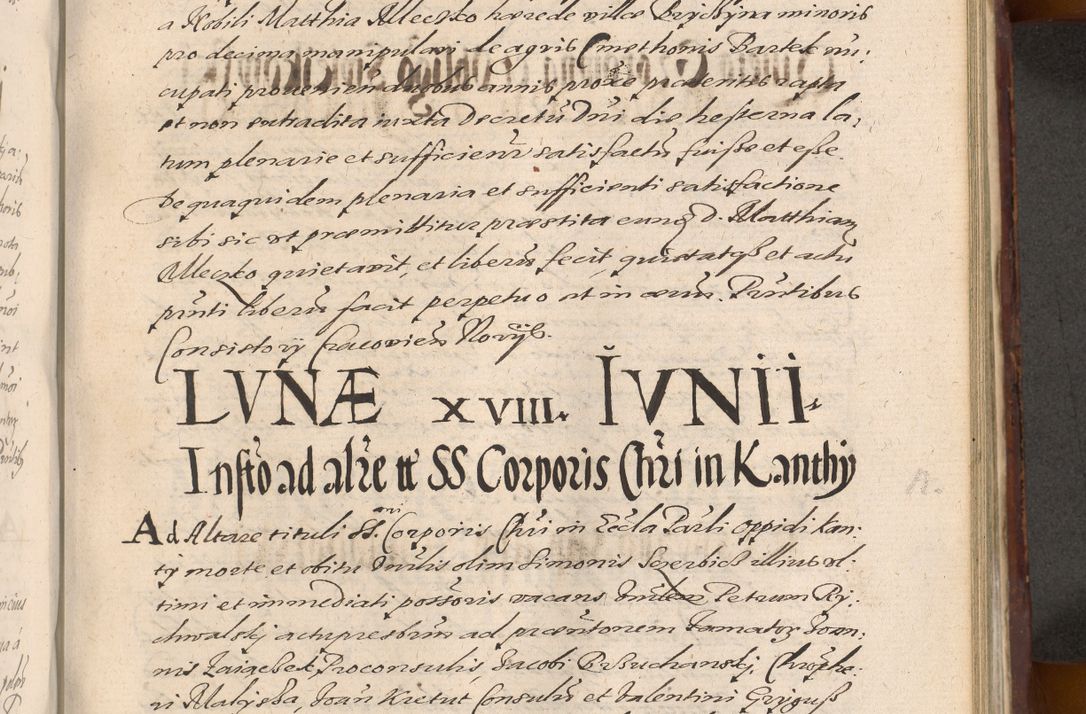 a Nobili Matthia Mleczko hærede villæ Brzichÿna minoris
pro decima manipulari de agris Cmethonis Bartek nũ:
cupati provenien duobus annis proxe præteritis rapta
et non extradita iuxta Decretũ Dñi die hesterna la,
tum plenarie et sufficienr satisfactũ fuisse et esse.
De qua quidem plenaria et sufficienti satisfactione
sibi sic ut præmittitur præstita eunq D. Matthiam
Mleczko quietavit, et liberũ fecit, quietatqz et actu
pñti liberũ facit perpetuo at in ævum. Pñtibus
Consistorÿ Cracovien Norÿs.
LVNÆ XVIII. IVNII.
Insto ad altre tt SS Corporis Chri in Kanthÿ
Ad Altare tituli SS. Corporis Chri in Eccla Parli oppidi Kan:
tÿ morte et obitu olim Simonis illius ul:
timi et immediati possoris vacans Petrum Rÿ:
chwalskj actu presbrum ad præntonem famator Joan:
nis Zaigebek, Proconsulis, Jacobi Christophe:
ri Malÿssa, Joan Kretut Consulũ et Valentini Grÿguss